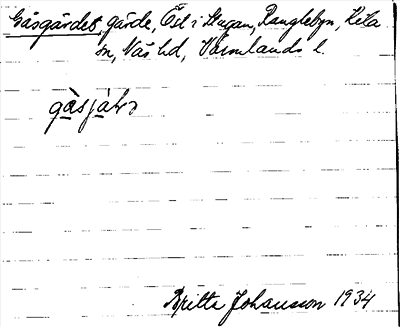 Gåsgärdet, gärde, Öst i Stugan, Ranglebyn, Kila
sn, Näs hd, Värmlands l.
gå̀sjȧLɔ
Britta Johansson 1934